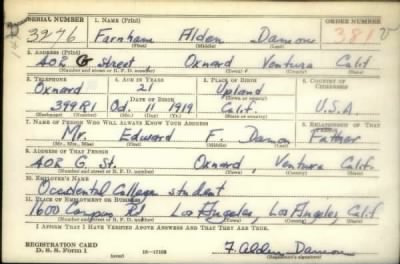 SERIAL NUMBER 1. NAME (Print) ORDER NUMBER
3276 Farnham Alden Damon 381
(First) (Middle) (Last)
2. ADDRESS (Print)
402 G Street Oxnard Ventura Calif
(Number and street or R. F. D. number) (Town) (County) (State)
3. TELEPHONE 4. AGE IN YEARS 5. PLACE OF BIRTH 6. COUNTRY OF CITIZENSHIP
Oxnard 21 Upland
DATE OF BIRTH (Town or county)
399R1 Oct, 11 1919 Calif. U.S.A
(Exchange) (Number) (Mo.) (Day) (Yr.) (State or country)
7. NAME OF PERSON WHO WILL ALWAYS KNOW YOUR ADDRESS 8. RELATIONSHIP OF THAT PERSON
Mr. Edward F. Damon Father
(Mr., Mrs., Miss) (First) (Middle) (Last)
9. ADDRESS OF THAT PERSON
402 G St. Oxnard, Ventura Calif.
(Number and street or R. F. D. number) (Town) (County) (State)
10. EMPLOYER'S NAME
Occidental College student
11. PLACE OF EMPLOYMENT OR BUSINESS
1600 Campus Rd Los Angeles, Los Angeles, Calif
(Number and street or R. F. D. number) (Town) (County) (State)
I AFFIRM THAT I HAVE VERIFIED ABOVE ANSWERS AND THAT THEY ARE TRUE.
REGISTRATION CARD
D. S. S. Form 1 (over) 16—17105 F. Alden Damon
(Registrant's signature)